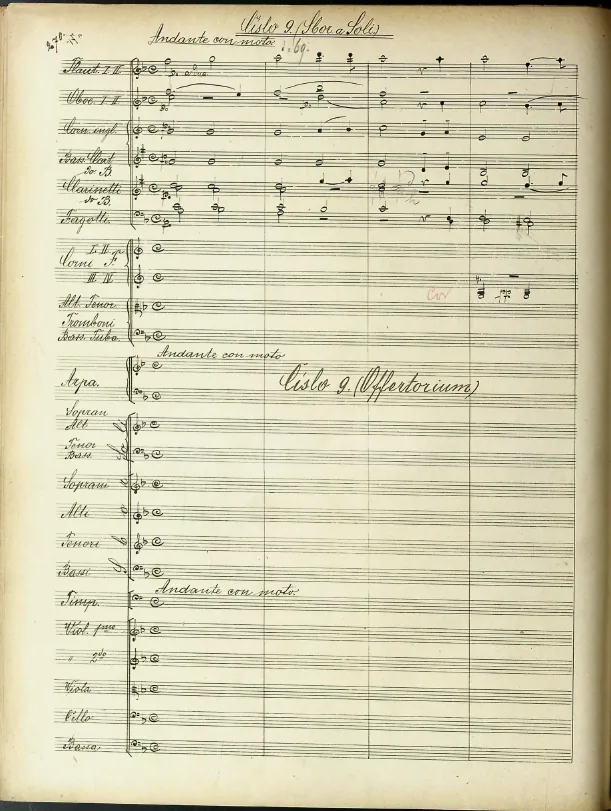 Číslo 9. (Sbor a Soli)
Andante con moto.
Flaut. I. II.
Oboe. I. II
Corn. ingl.
Bass. Clart
do B.
Clarinetti
do B.
Fagotti.
I. II.
Corni F.
III. IV.
Cor
Alt. Tenor
Tromboni
Bass. Tuba.
Andante con moto
Arpa.
Číslo 9. (Offertorium)
Sopran
Alt
Tenor
Bass.
Soli
Soprani
Alti
Tenori
Bassi
Sbor
Andante con moto.
Timp.
Viol. pmo
" 2do
Viola
Cello
Bassa.